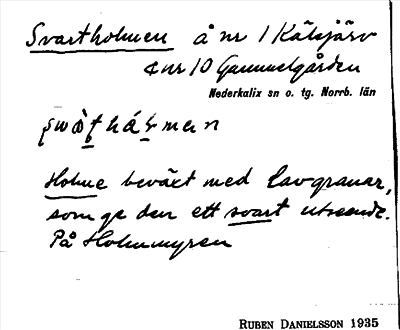 Svartholmen å nr 1 Kälsjärv
& nr 10 Gammelgården
Nederkalix sn o. tg. Norrb. län
Holme beväxt med lavgranar,
som ge den ett svart utseende.
På Holmmyren
RUBEN DANIELSSON 1935